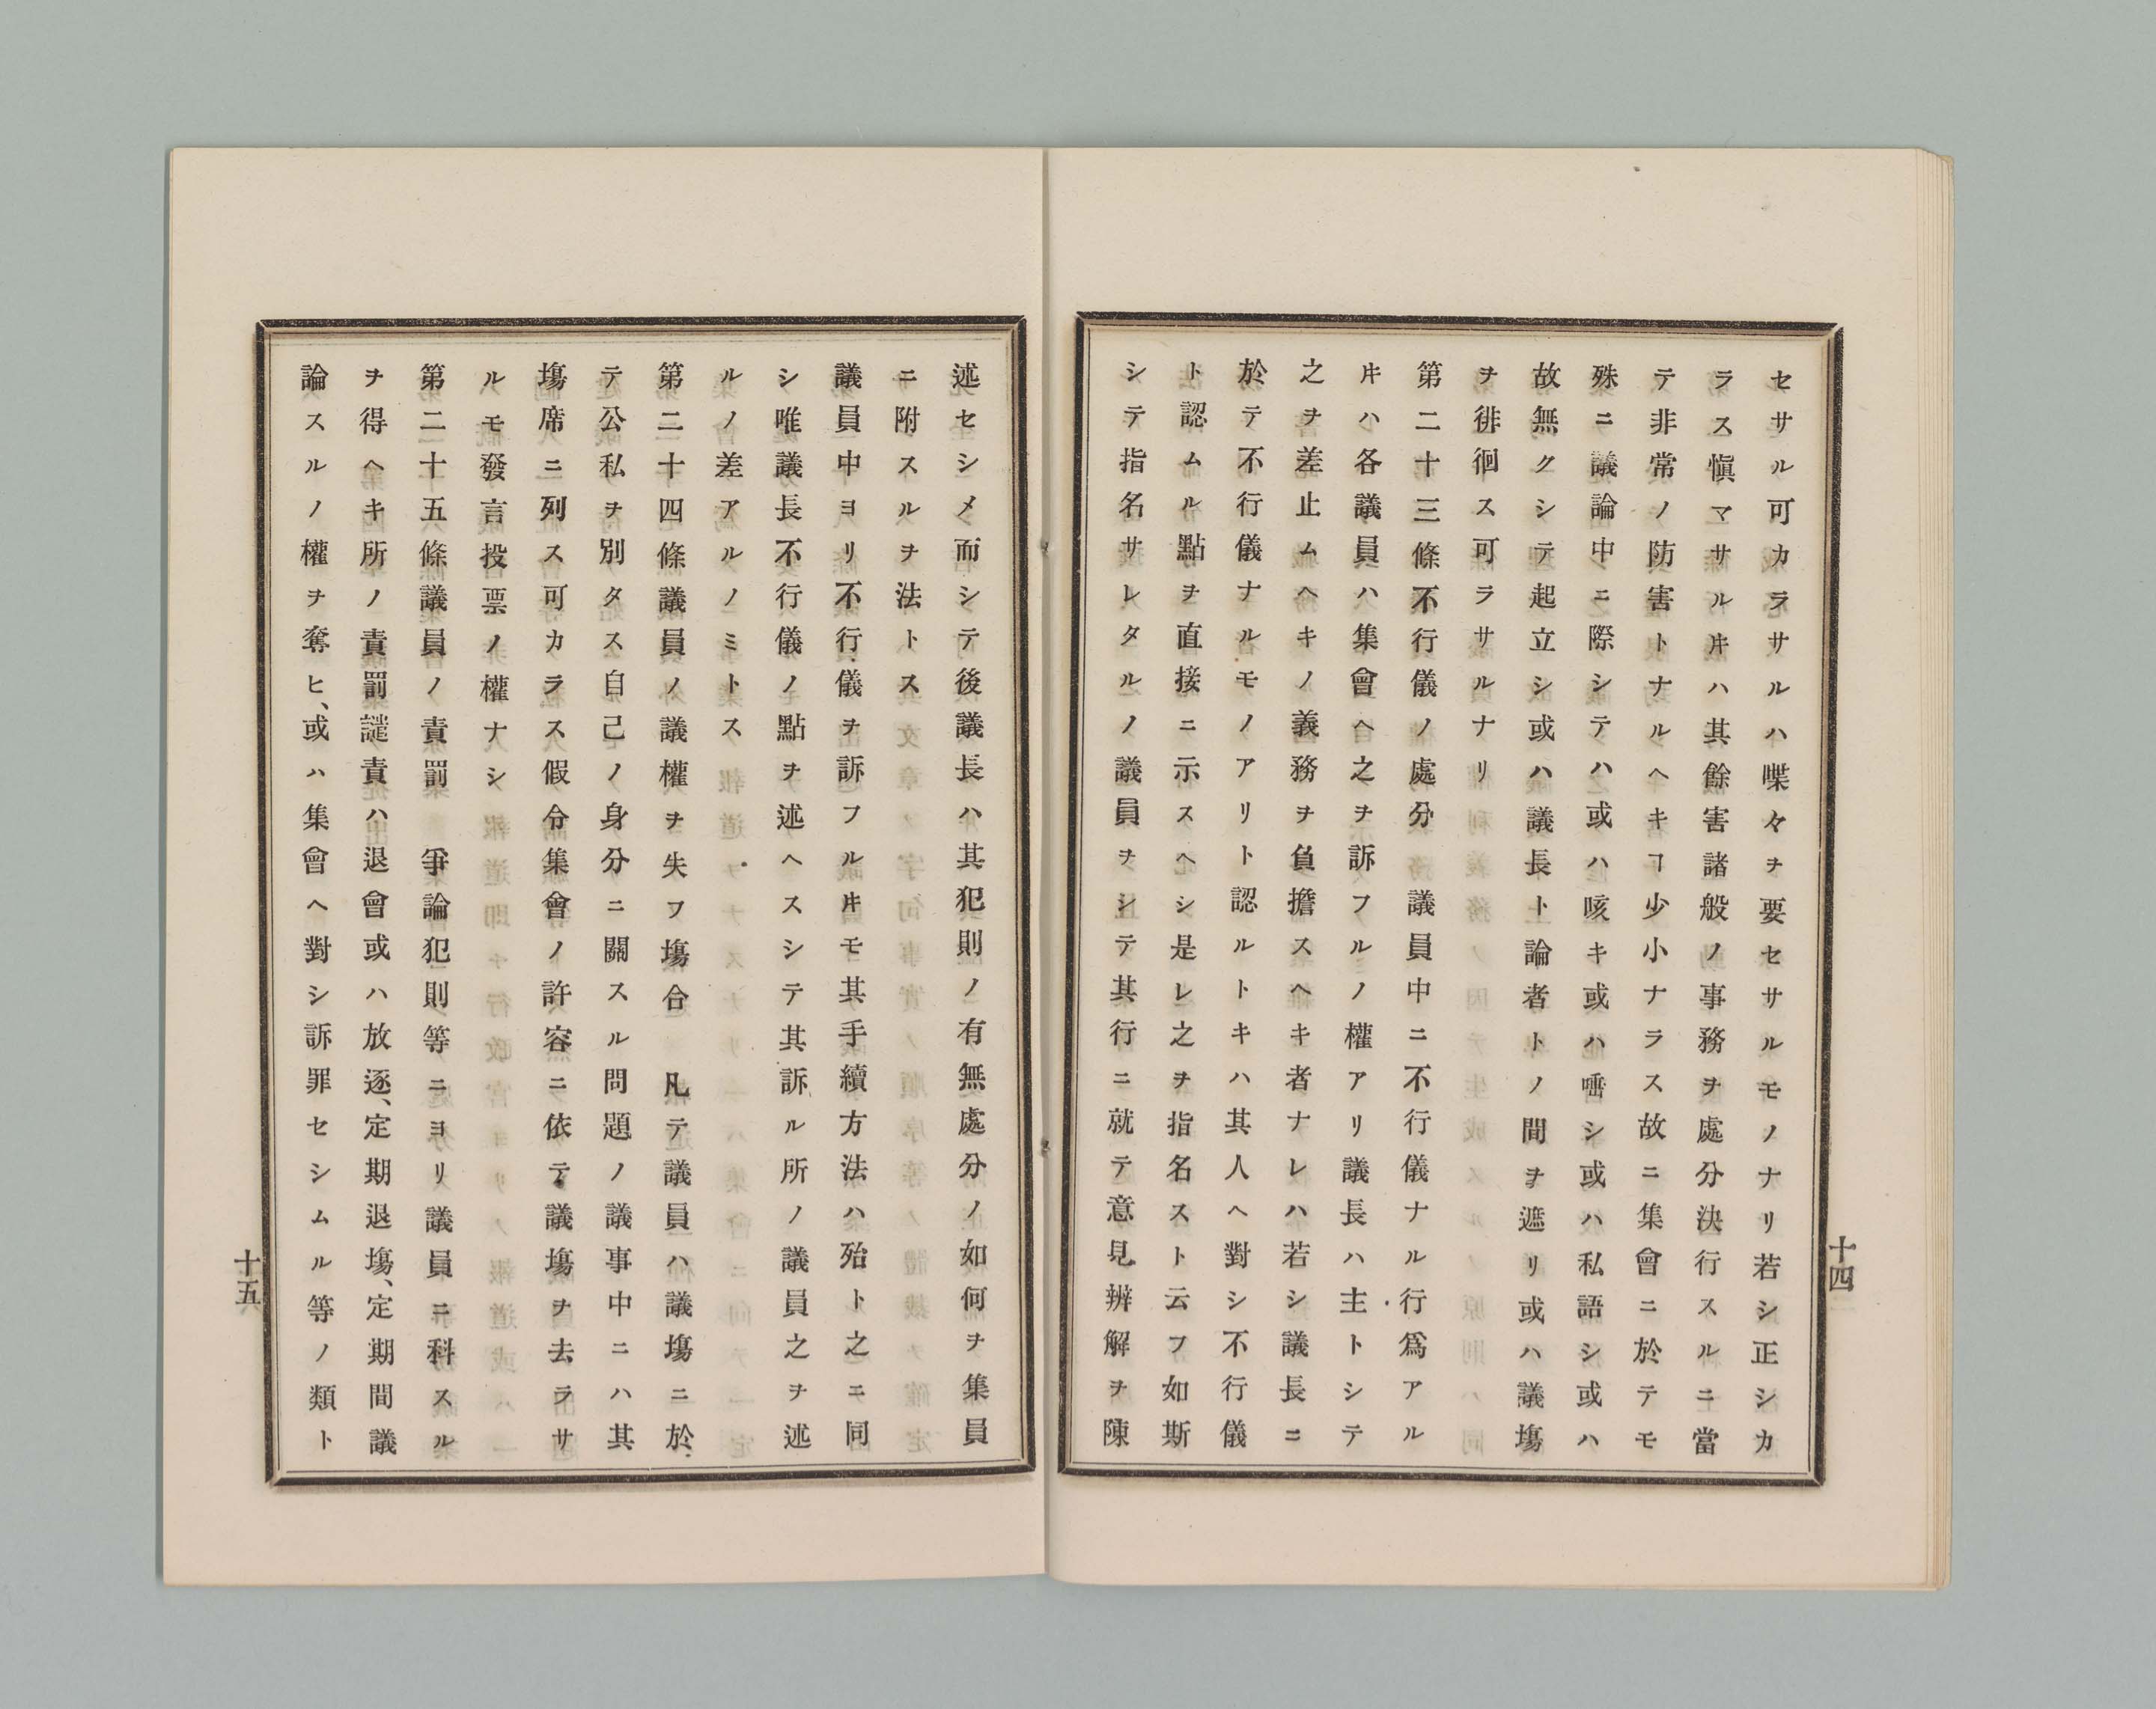 セサル可カラサルハ喋々ヲ要セサルモノナリ若シ正シカ
ラス愼マサル𪜈ハ其餘害諸般ノ事務ヲ處分決行スルニ當
テ非常ノ防害トナルヘキヿ少小ナラス故ニ集會ニ於テモ
殊ニ議論中ニ際シテハ或ハ咳キ或ハ唾シ或ハ私語シ或ハ
故無クシテ起立シ或ハ議長ト論者トノ間ヲ遮リ或ハ議塲
ヲ徘徊ス可ラサルナリ
第二十三條不行儀ノ處分　議員中ニ不行儀ナル行爲アル
𪜈ハ各議員ハ集會ヘ之ヲ訴フルノ權アリ議長ハ主トシテ
之ヲ差止ムヘキノ義務ヲ負擔スヘキ者ナレハ若シ議長ニ
於テ不行儀ナルモノアリト認ルトキハ其人ヘ對シ不行儀
ト認ムル點ヲ直接ニ示スヘシ是レ之ヲ指名スト云フ如斯
シテ指名サレタルノ議員ヲシテ其行ニ就テ意見辨解ヲ陳
十四
述セシメ而シテ後議長ハ其犯則ノ有無處分ノ如何ヲ集員
ニ附スルヲ法トス
議員中ヨリ不行儀ヲ訴フル𪜈モ其手續方法ハ殆ト之ニ同
シ唯議長不行儀ノ點ヲ述ヘスシテ其訴ル所ノ議員之ヲ述
ルノ差アルノミトス
第二十四條議員ノ議權ヲ失フ塲合　凡テ議員ハ議塲ニ於
テ公私ヲ別タス自己ノ身分ニ關スル問題ノ議事中ニハ其
塲席ニ列ス可カラス假令集會ノ許容ニ依テ議塲ヲ去ラサ
ルモ發言投票ノ權ナシ
第二十五條議員ノ責罰　爭論犯則等ニヨリ議員ニ科スル
ヲ得ヘキ所ノ責罰譴責ハ退會或ハ放逐、定期退塲、定期間議
論スルノ權ヲ奪ヒ、或ハ集會ヘ對シ訴罪セシムル等ノ類ト
十五